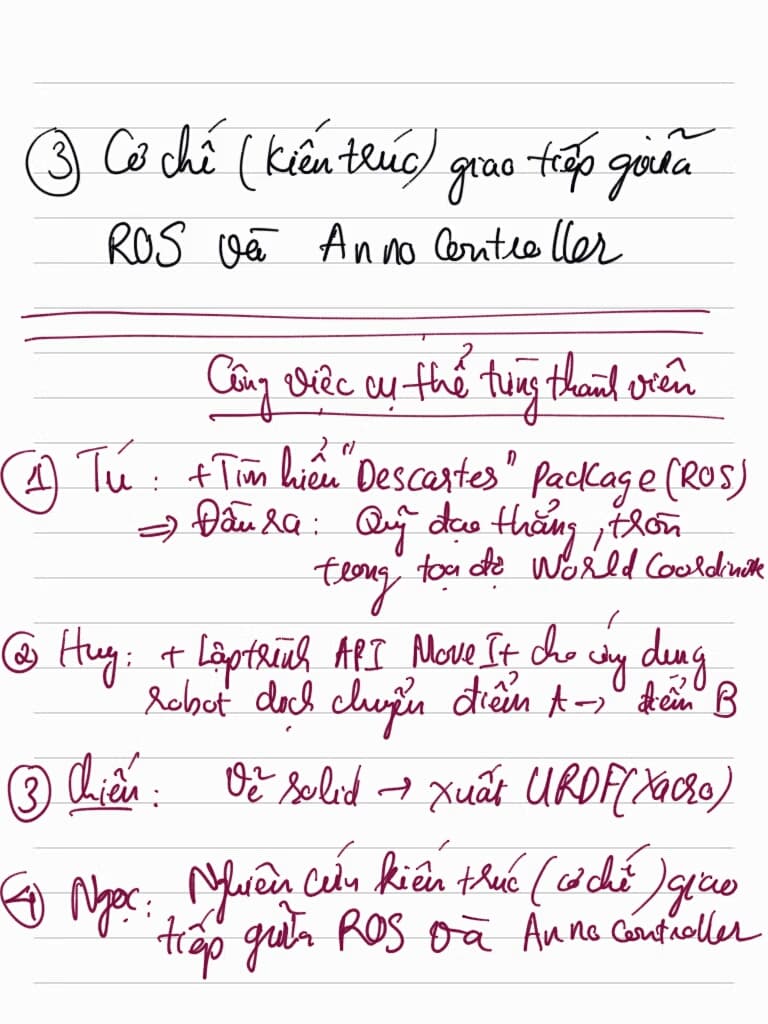 ③ Cơ chế (kiến trúc) giao tiếp giữa
ROS và Anno Controller
Công việc cụ thể từng thành viên
① Tú : + Tìm hiểu "Descartes" package (ROS)
⇒ Đầu ra : Quỹ đạo thẳng, tròn
trong tọa độ World Coordinate
② Huy : + Lập trình API MoveIt cho ứng dụng
robot dịch chuyển điểm A → điểm B
③ Chiến : Vẽ solid → xuất URDF (Xacro)
④ Ngọc : Nghiên cứu kiến trúc (cơ chế) giao
tiếp giữa ROS và Anno Controller